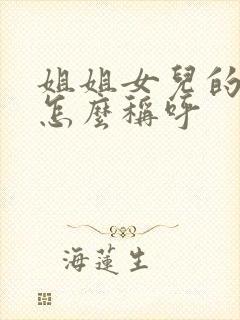 姐姐女兒的
怎麼稱呼
海蓮生